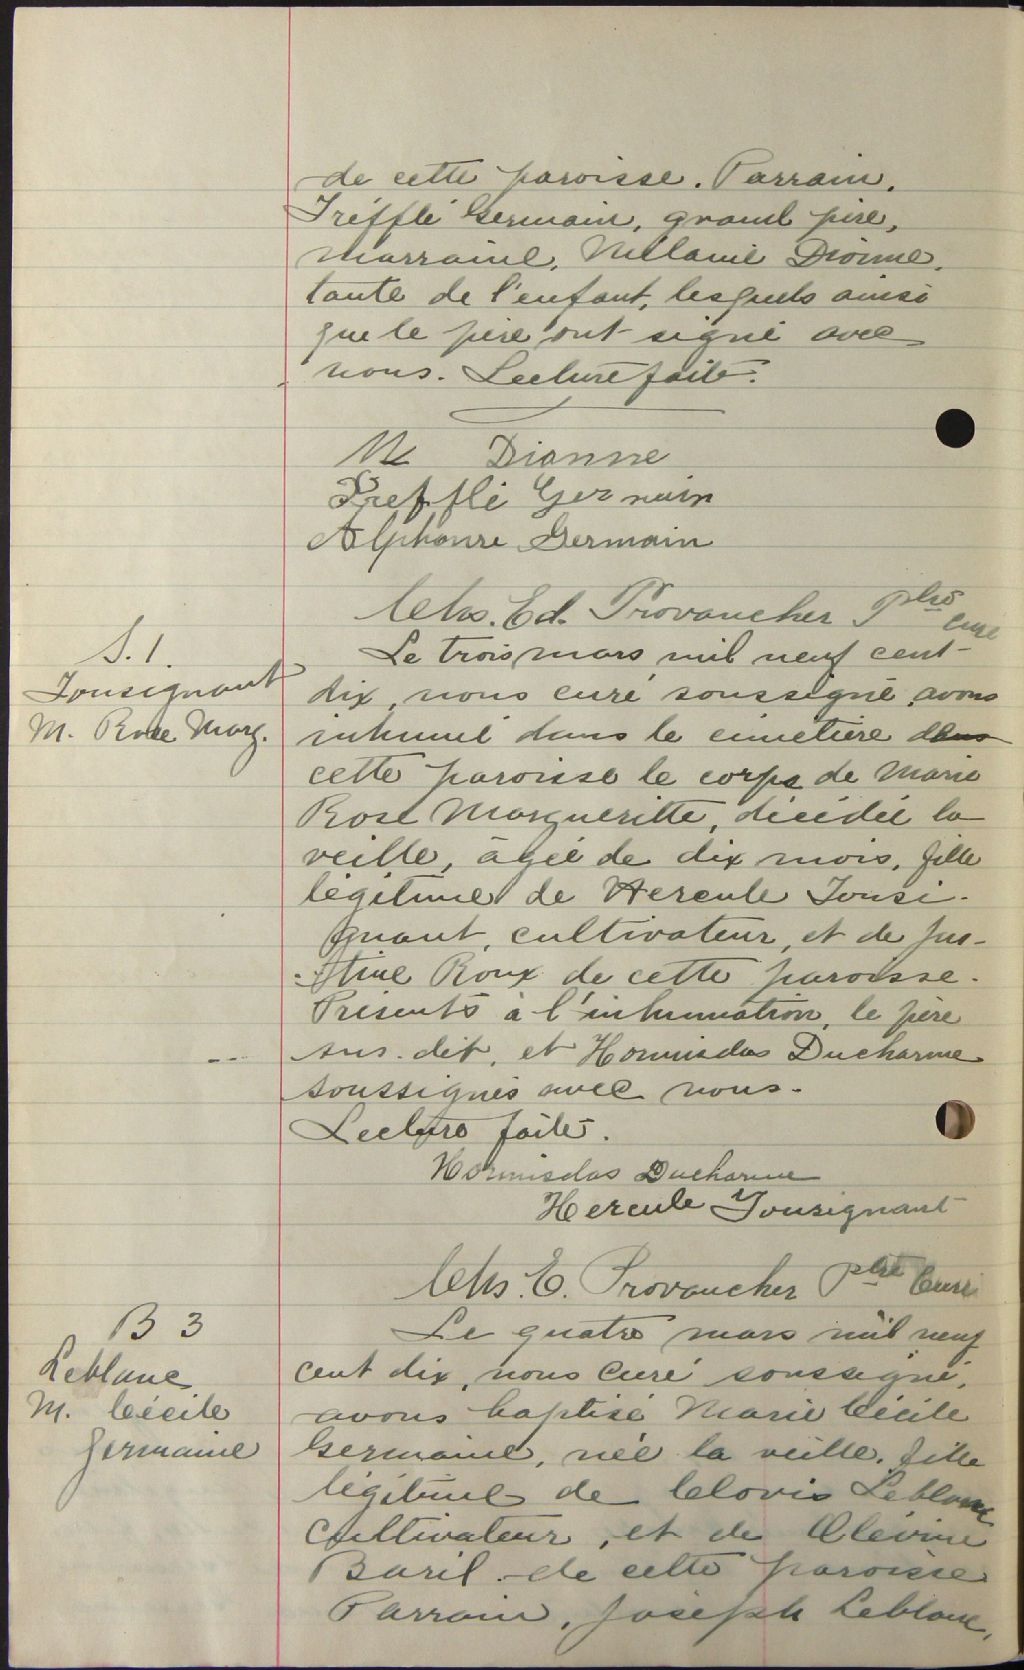 de cette paroisse. Parrain,
Tréfflé Germain, grand père,
Marraine, Mélanie Dionne,
tante de l'enfant, lesquels ainsi
que le père ont signé avec
nous. Lecture faite.
M Dionne
Trefflé Germain
Alphonse Germain
Chs. Ed. Provancher Ptre curé
S. 1.
Tousignant
M. Rose Marg.
Le trois mars mil neuf cent
dix, nous curé soussigné, avons
inhumé dans le cimetière de
cette paroisse le corps de Marie
Rose Margueritte, décédée la
veille, âgée de dix mois, fille
légitime de Hercule Tousi-
gnant, cultivateur, et de Jus-
tine Roux de cette paroisse.
Présents à l'inhumation, le père
sus-dit, et Hormisdas Ducharme
soussignés avec nous.
Lecture faite.
Hormisdas Ducharme
Hercule Tousignant
Chs. E. Provancher Ptre Curé
B 3
Leblanc
M. Cécile
Germaine
Le quatre mars mil neuf
cent dix, nous curé soussigné,
avons baptisé Marie Cécile
Germaine, née la veille, fille
légitime de Clovis Leblanc
cultivateur, et de Olévine
Baril de cette paroisse
Parrain, Joseph Leblanc,